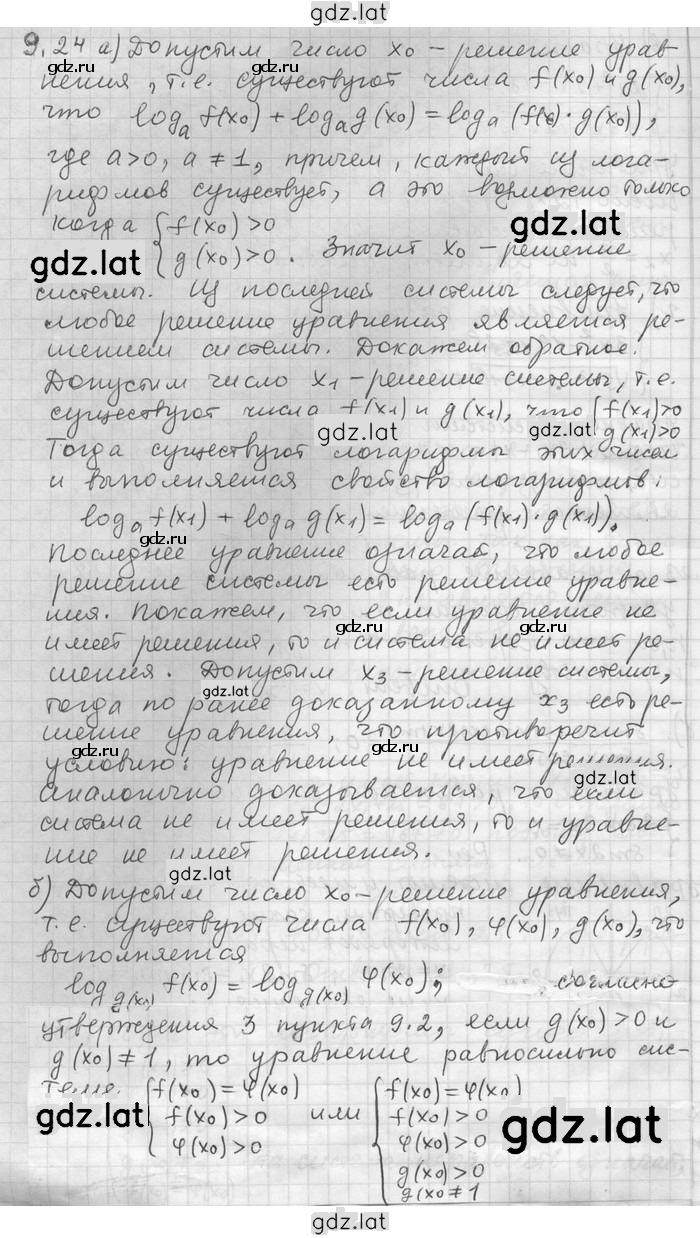 gdz.lat
9.24 а) Допустим число x₀ – решение урав-
нения, т.е. существуют числа f(x₀) и g(x₀),
gdz.ru
что logₐ f(x₀) + logₐ g(x₀) = logₐ (f(x₀) · g(x₀)),
где a>0, a ≠ 1, причем, каждый из лога-
рифмов существует, а это возможно только
когда { f(x₀) >0
g(x₀) >0 . Значит x₀ – решение
gdz.lat
gdz.lat
системы. Из последней системы следует, что
любое решение уравнения является ре-
шением системы. Докажем обратное.
gdz.ru
Допустим число x₁ – решение системы, т.е.
существуют числа f(x₁) и g(x₁), что { f(x₁) >0
g(x₁) >0
gdz.lat
gdz.lat
Тогда существуют логарифмы этих чисел
и выполняется свойство логарифмов:
gdz.ru
logₐ f(x₁) + logₐ g(x₁) = logₐ (f(x₁) · g(x₁)).
Последнее уравнение означай, что любое
gdz.ru
решение системы есть решение уравне-
ния. Покажем, что если уравнение не
имеет решения, то и система не имеет ре-
gdz.ru
шения. Допустим x₃ – решение системы,
gdz.lat
тогда по ранее доказанному x₃ есть ре-
шение уравнения, что противоречит
gdz.ru
gdz.ru
условию: уравнение не имеет решения.
gdz.lat
Аналогично доказывается, что если
система не имеет решения, то и уравне-
ние не имеет решения.
gdz.lat
б) Допустим число x₀ – решение уравнения,
т.е. существуют числа f(x₀), φ(x₀), g(x₀), что
gdz.ru
выполняется
log_g(x₀) f(x₀) = log_g(x₀) φ(x₀); согласно
gdz.lat
утверждения 3 пункта 9.2, если g(x₀) >0 и
gdz.ru
g(x₀) ≠ 1, то уравнение равносильно сис-
теме { f(x₀) = φ(x₀)
f(x₀) >0
φ(x₀) >0
или { f(x₀) = φ(x₀)
f(x₀) >0
φ(x₀) >0
g(x₀) >0
g(x₀ ≠ 1
gdz.lat
gdz.lat
gdz.lat